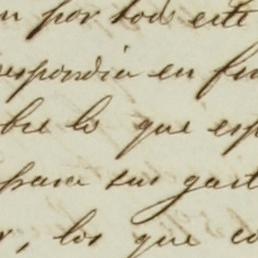 n por tod este
espondia en fu
bre lo que esp
para sus gast
r, los que co